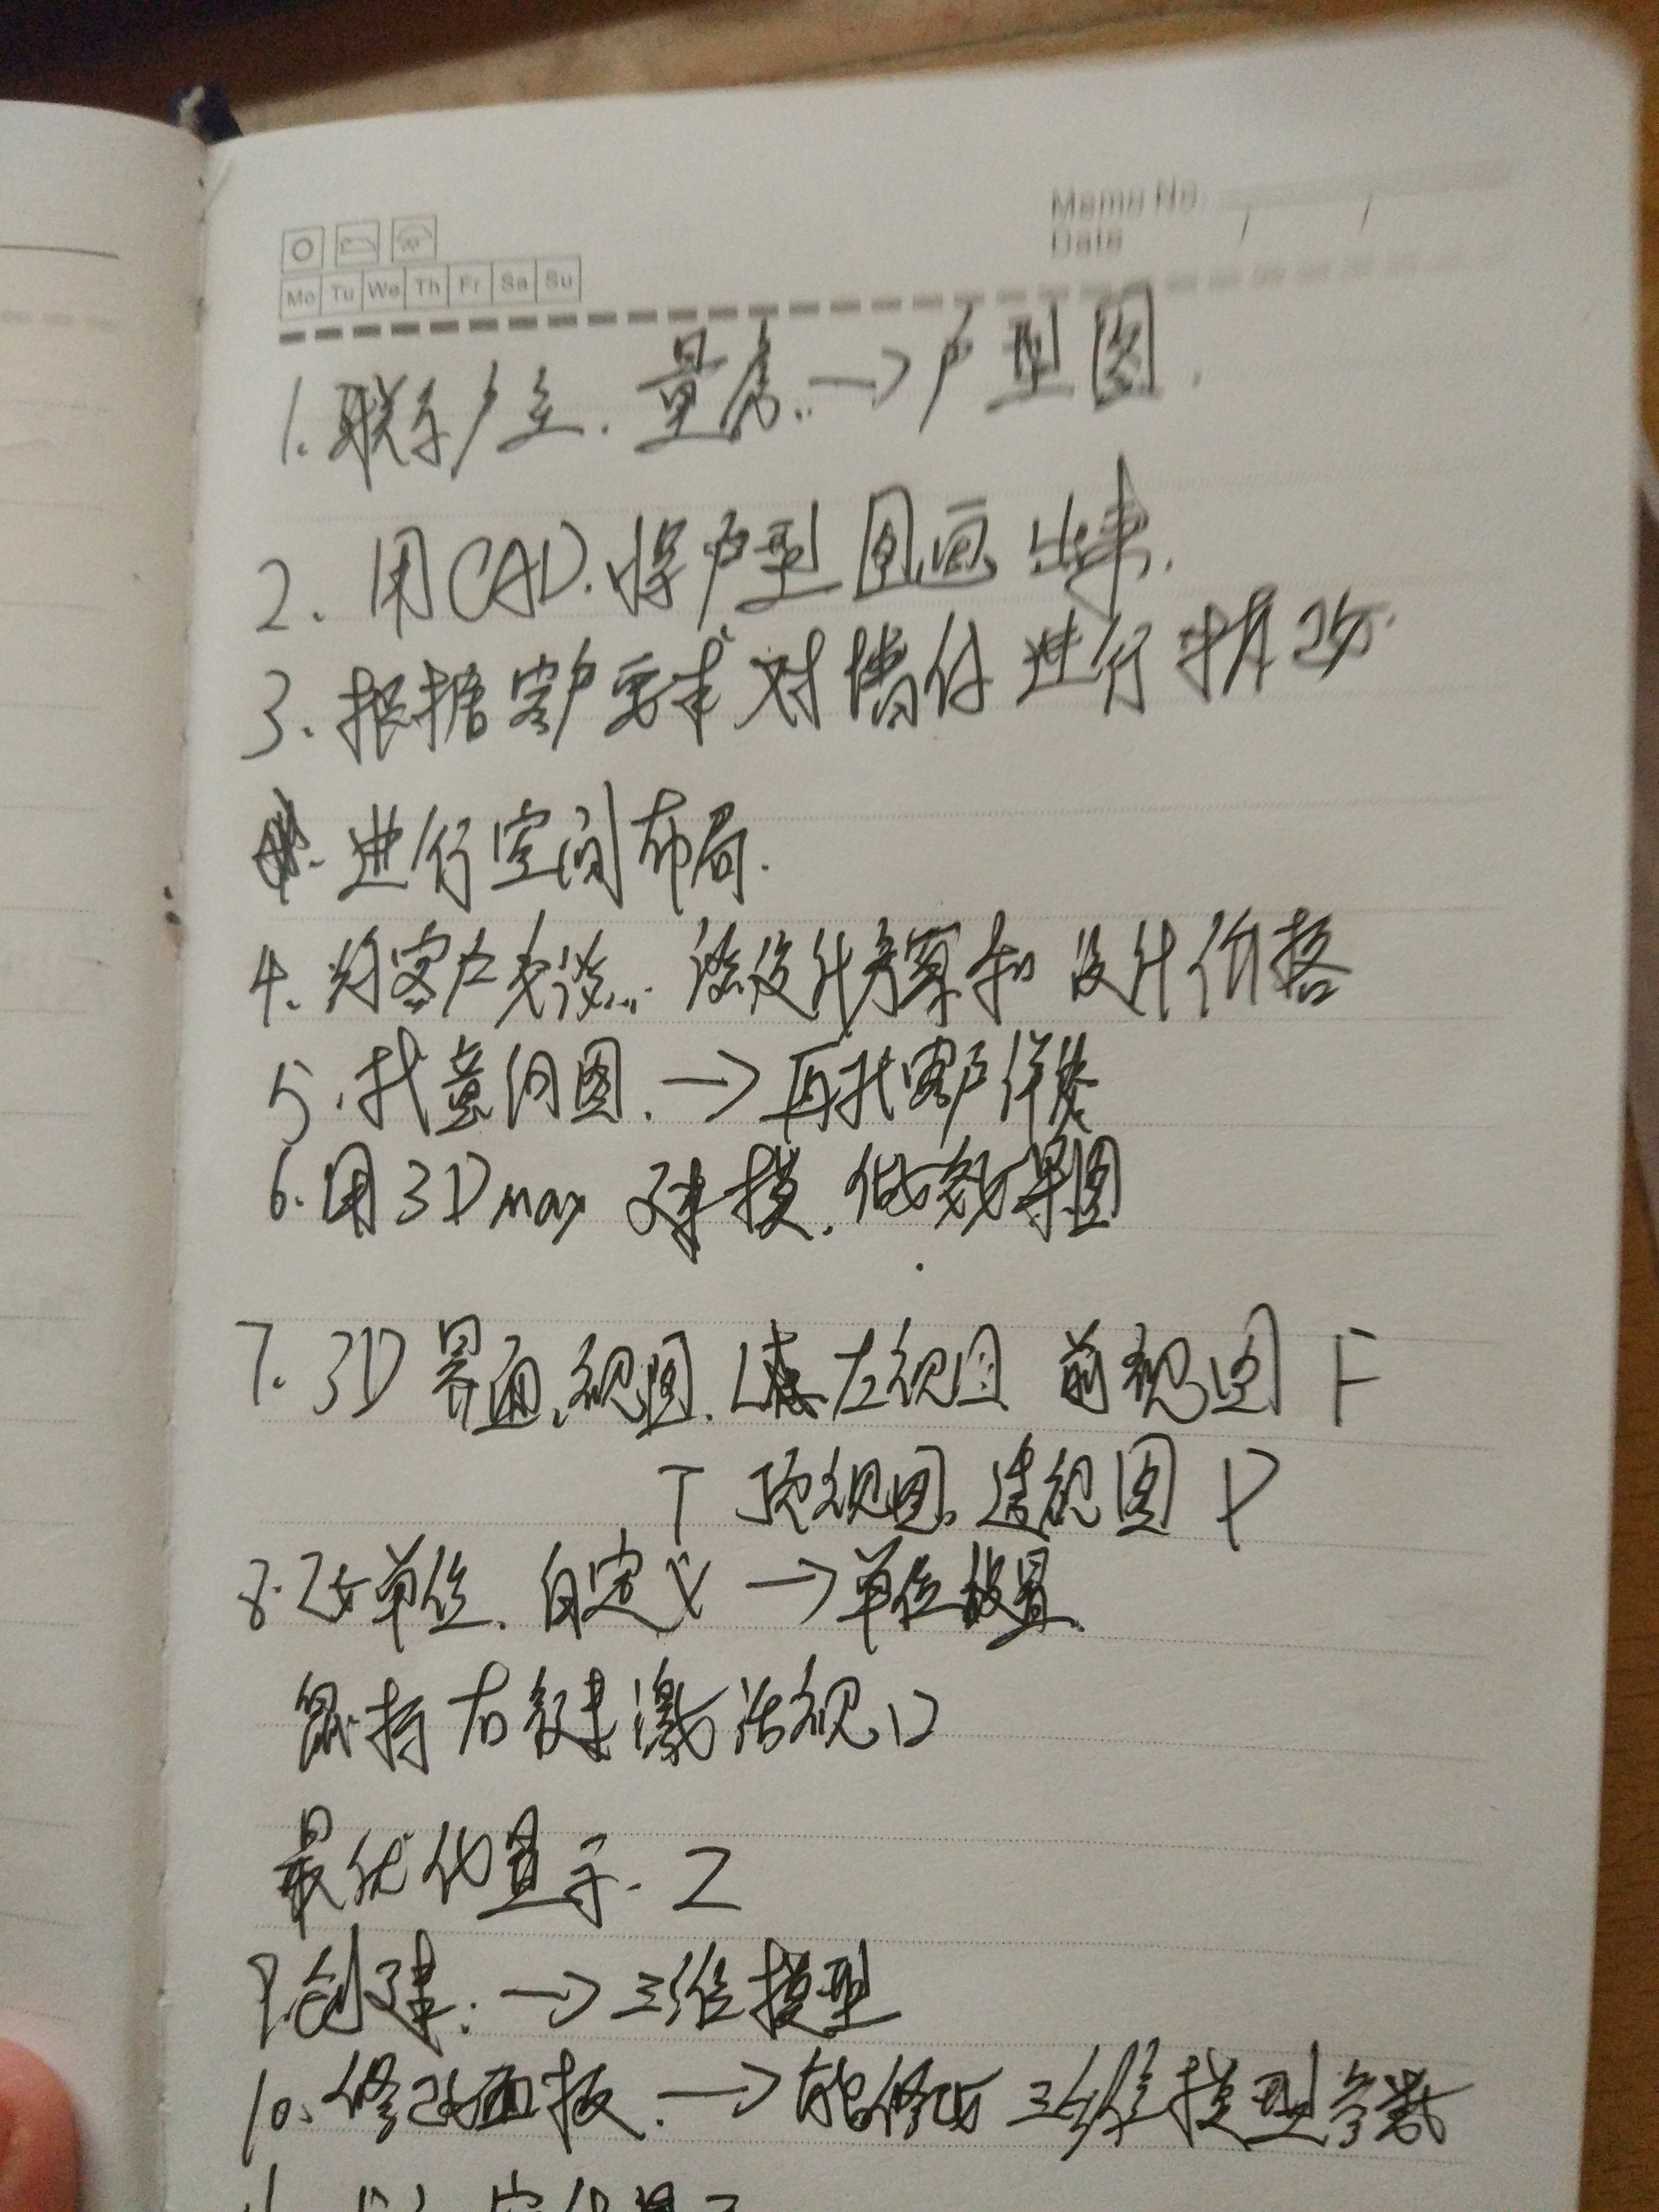 Memo No.
Date / /
Mo Tu We Th Fr Sa Su
1. 联系户主. 量房. → 户型图.
2. 用CAD. 将户型图画出来.
3. 根据客户要求对墙体进行拆改.
进行空间布局.
4. 约客户交谈... 谈设计预算和设计价格
5. 找意向图. → 再找客户详谈
6. 用3Dmax 建模. 做效果图
7. 3D 界面. 视图. L 左视图 前视图 F
T 顶视图. 透视图 P
8. 改单位. 自定义 → 单位设置.
鼠标右键激活视口
最优化显示. Z
9. 创建. → 三维模型
10. 修改面板. → 能修改三维模型参数